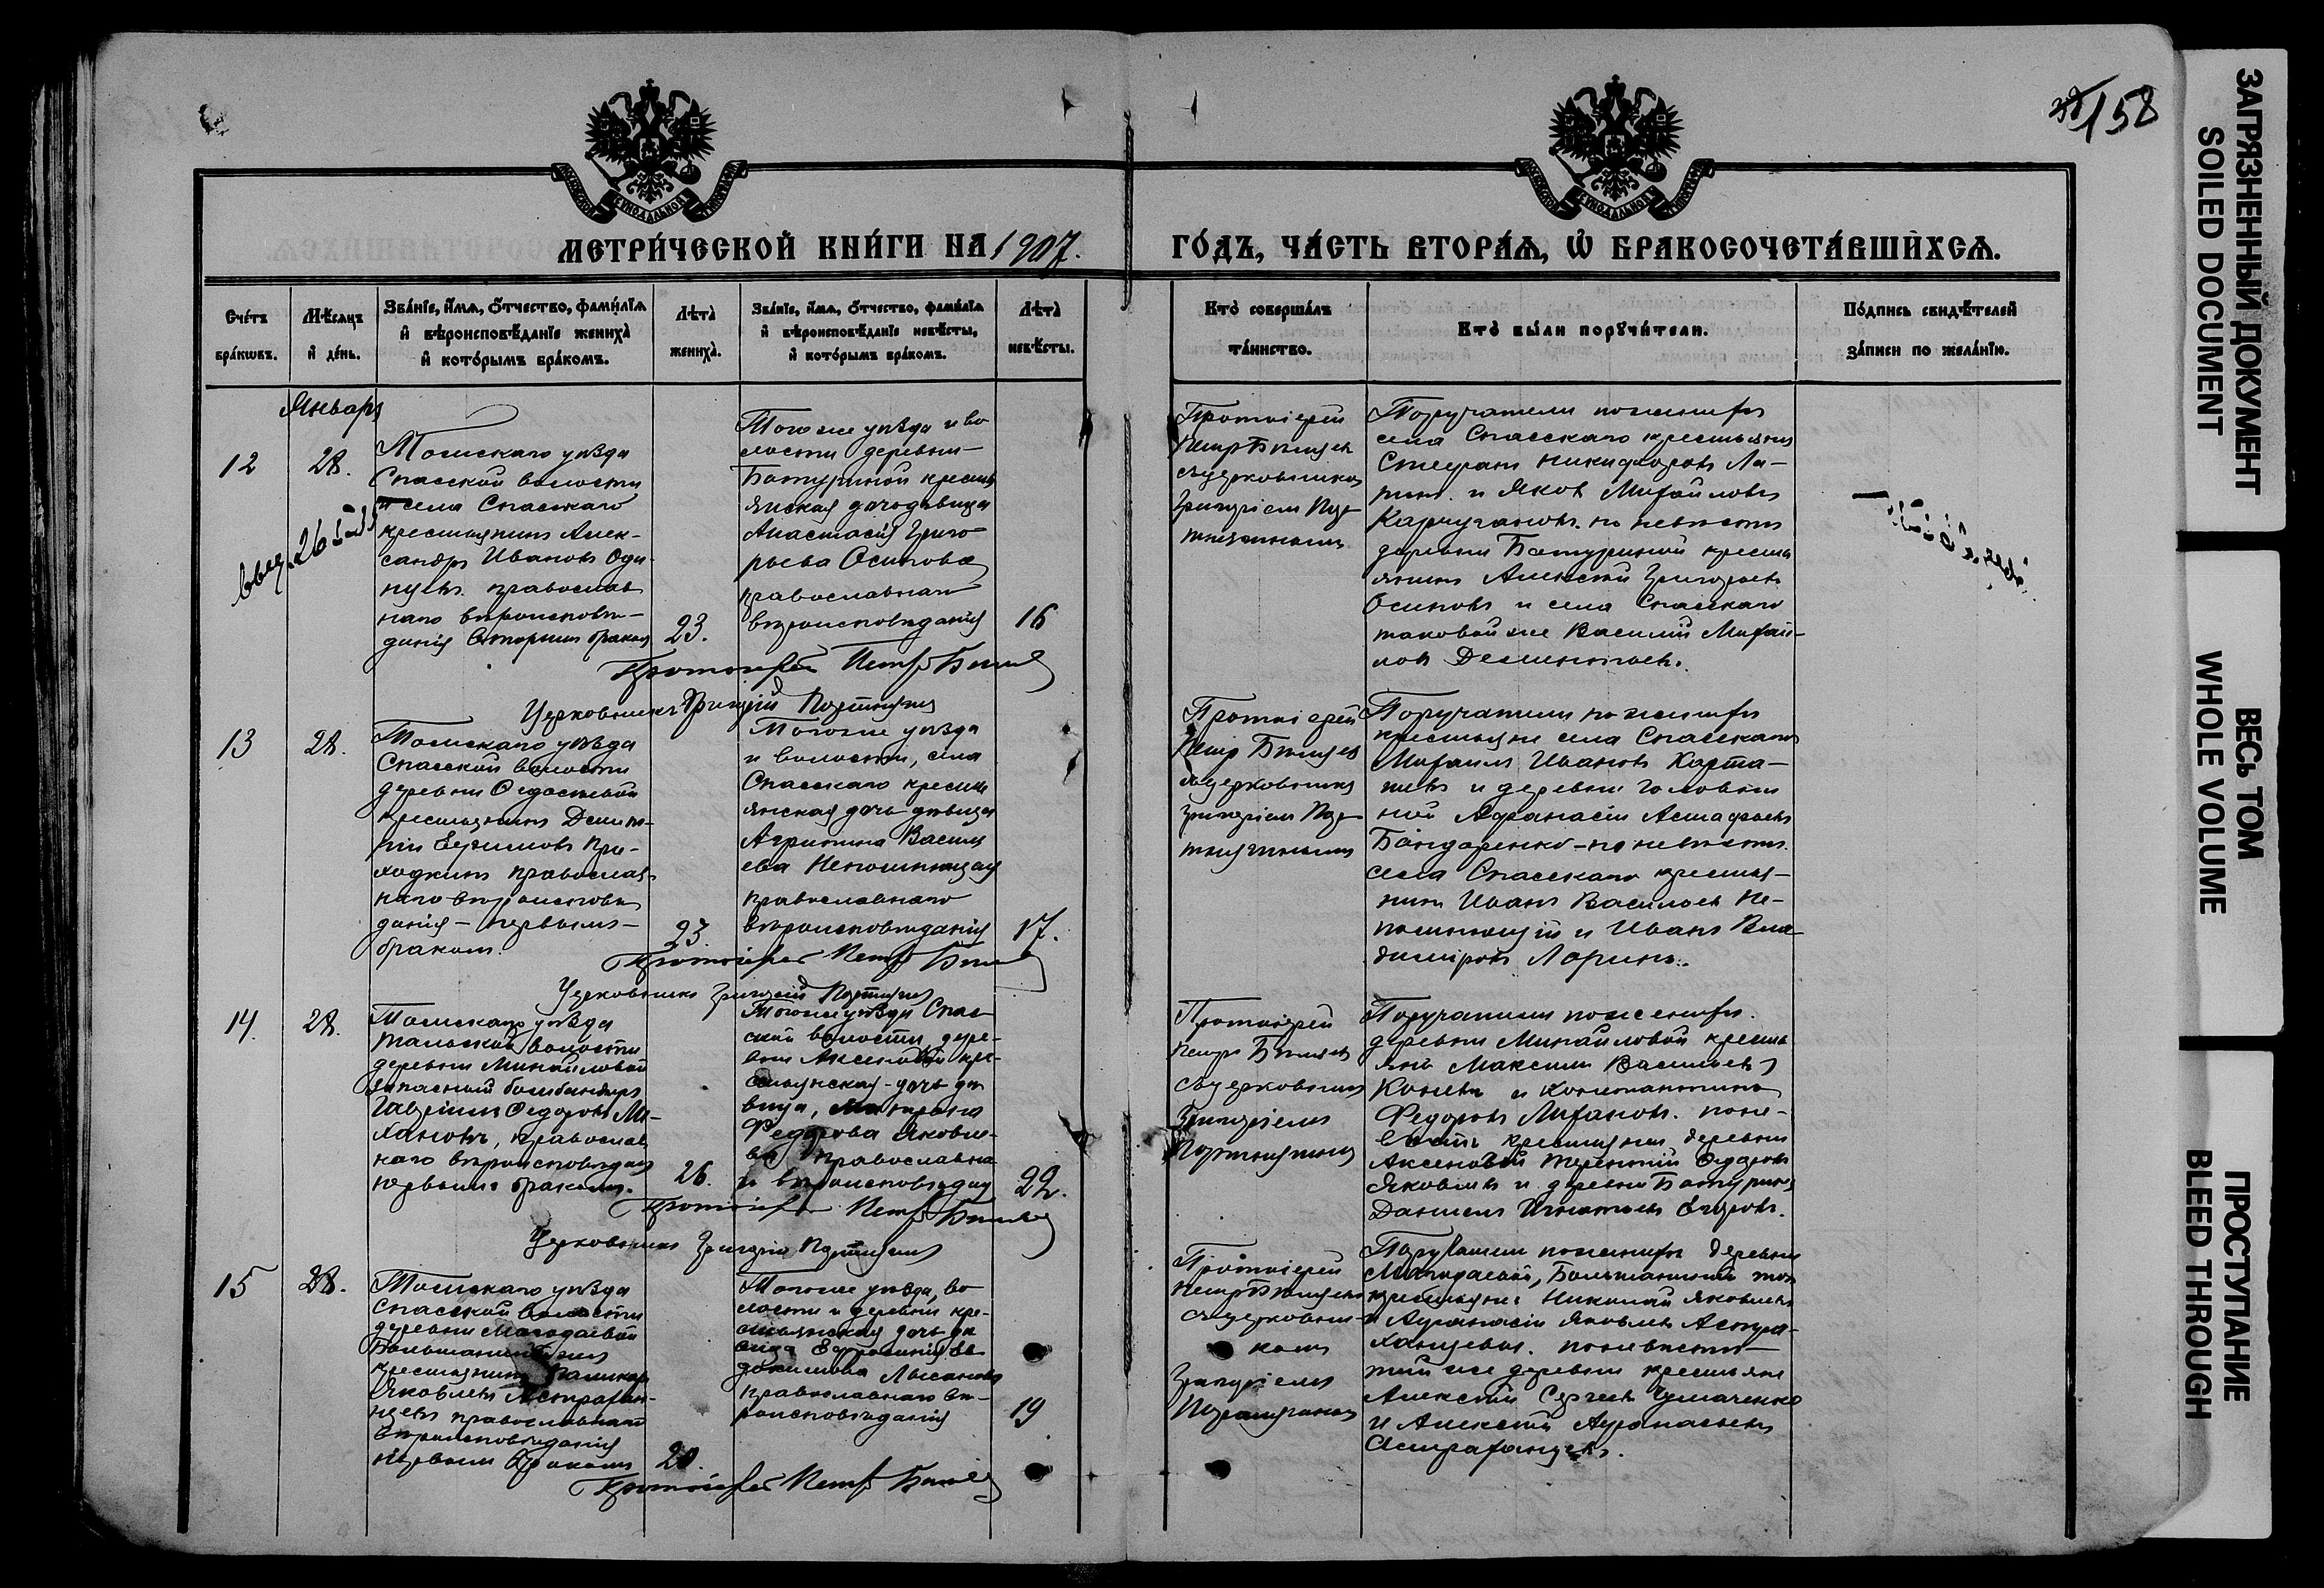 158
МЕТРИ́ЧЕСКОЙ КНИ́ГИ НА 1907.
ГО́ДЪ, ЧА́СТЬ ВТОРА́Ѧ, Ѡ҆ БРАКОСОЧЕТА́ВШИХСѦ.
Сче́тъ бра́кѡвъ.
Мѣ́сяцъ и҆ де́нь.
Зва́нїе, и҆́мѧ, ѻ҆́тчество, фами́лїѧ
и҆ вѣроисповѣ́данїе жениха̀
и҆ кото́рымъ бра́комъ.
Лѣта̀ жениха̀.
Зва́нїе, и҆́мѧ, ѻ҆́тчество, фами́лїѧ
и҆ вѣроисповѣ́данїе невѣ́сты,
и҆ кото́рымъ бра́комъ.
Лѣта̀ невѣ́сты.
Кто̀ соверша́лъ
та́инство.
Кто̀ бы́ли порꙋчи́тели.
По́дпись свидѣ́телей
за́писи по жела́нїю.
Январь
12
28.
Томскаго уѣзда
Спасской волости
села Спасскаго
крестьянинъ Алек-
сандръ Ивановъ Оди-
нцевъ православ
наго вѣроисповѣ-
данія Вторымъ бракомъ
23.
Того же уѣзда и во
лости деревни
Батуриной крестья
янская дочь дѣвица
Анастасія Григо
рьева Осипова
православнаго
вѣроисповѣданія
16
Протоіерей
Петръ
съ церковникомъ
Григоріемъ
Поручатели по женихѣ
села Спасскаго крестьянинъ
Стефанъ Никифоровъ Ла-
ринъ и Яковъ Михайловъ
по невѣстѣ
деревни Батуриной кресть
янинъ Алексѣй Григорьевъ
Осиповъ и села Спасскаго
таковой же Василій Михай-
ловъ Дементьевъ.
Протоіерей Петръ
Церковникъ Григорій
13
28.
Томскаго уѣзда
Спасской волости
деревни Ѳедосѣевой
крестьянинъ Дмит-
рій Ефимовъ При-
ходкинъ православ
наго вѣроисповѣ
данія - первымъ -
бракомъ.
23.
Того же уѣзда
и волости, села
Спасскаго кресть
янская дочь дѣвица
Агрипина Василь
ева Непомнющая
православнаго
вѣроисповѣданія
17.
Протоіерей
Петръ
съ церковникомъ
Григоріемъ
Поручатели по женихѣ
крестьяне села Спасскаго
Михаилъ Ивановъ Карта-
шевъ и деревни Головни
ной Афанасій Астафьевъ
Бондаренко - по невѣстѣ
села Спасскаго крестья-
нинъ Иванъ Васильевъ Не-
помнющій и Иванъ Вла-
диміровъ Ларинъ.
Протоіерей Петръ
Церковникъ Григорій
14.
28.
Томскаго уѣзда
Тальской волости
деревни Михайловой
запасный бомбандиръ
Гавріилъ Ѳедоровъ Ли-
хановъ, православ
наго вѣроисповѣданія
первымъ бракомъ.
26.
Того же уѣзда Спас-
ской волости, дере-
вни Аксеновой кре-
стьянская дочь дѣ
вица,
Ѳедорова Яковле-
ва православна
го вѣроисповѣдан
22.
Протоіерей
Петръ
съ церковникомъ
Григоріемъ
Поручатели по женихѣ
деревни Михайловой кресть
яне Максимъ Васильевъ
и Константинъ
Федоровъ Лихановъ. по не-
вѣстѣ крестьяне деревни
Аксеновой Терентій Ѳедоровъ
Яковлевъ и деревни Батурин
Даниилъ Игнатьевъ Егоровъ.
Протоіерей Петръ
Церковникъ Григорій
15
28.
Томскаго уѣзда
Спасской волости
деревни
крестьянинъ
Яковлевъ Астрахан-
цевъ православнаго
вѣроисповѣданія
первымъ бракомъ
20.
Того же уѣзда, во
лости и деревни кре-
стьянская дочь дѣ
вица Ефросинія Ев
докимова Лысанова
православнаго вѣ-
роисповѣданія
19
Протоіерей
Петръ
съ церковни-
комъ
Григоріемъ
Поручатели по женихѣ деревни
крестьяне Николай Яковлевъ
и Афанасій Яковлевъ Астра-
ханцевы. по невѣстѣ
той же деревни крестьяне
Алексѣй Сергѣевъ Чумаченко
и Алексѣй Афанасьевъ
Астраханцевъ.
Протоіерей Петръ
ЗАГРЯЗНЕННЫЙ ДОКУМЕНТ
SOILED DOCUMENT
ВЕСЬ ТОМ
WHOLE VOLUME
ПРОСТУПАНИЕ
BLEED THROUGH